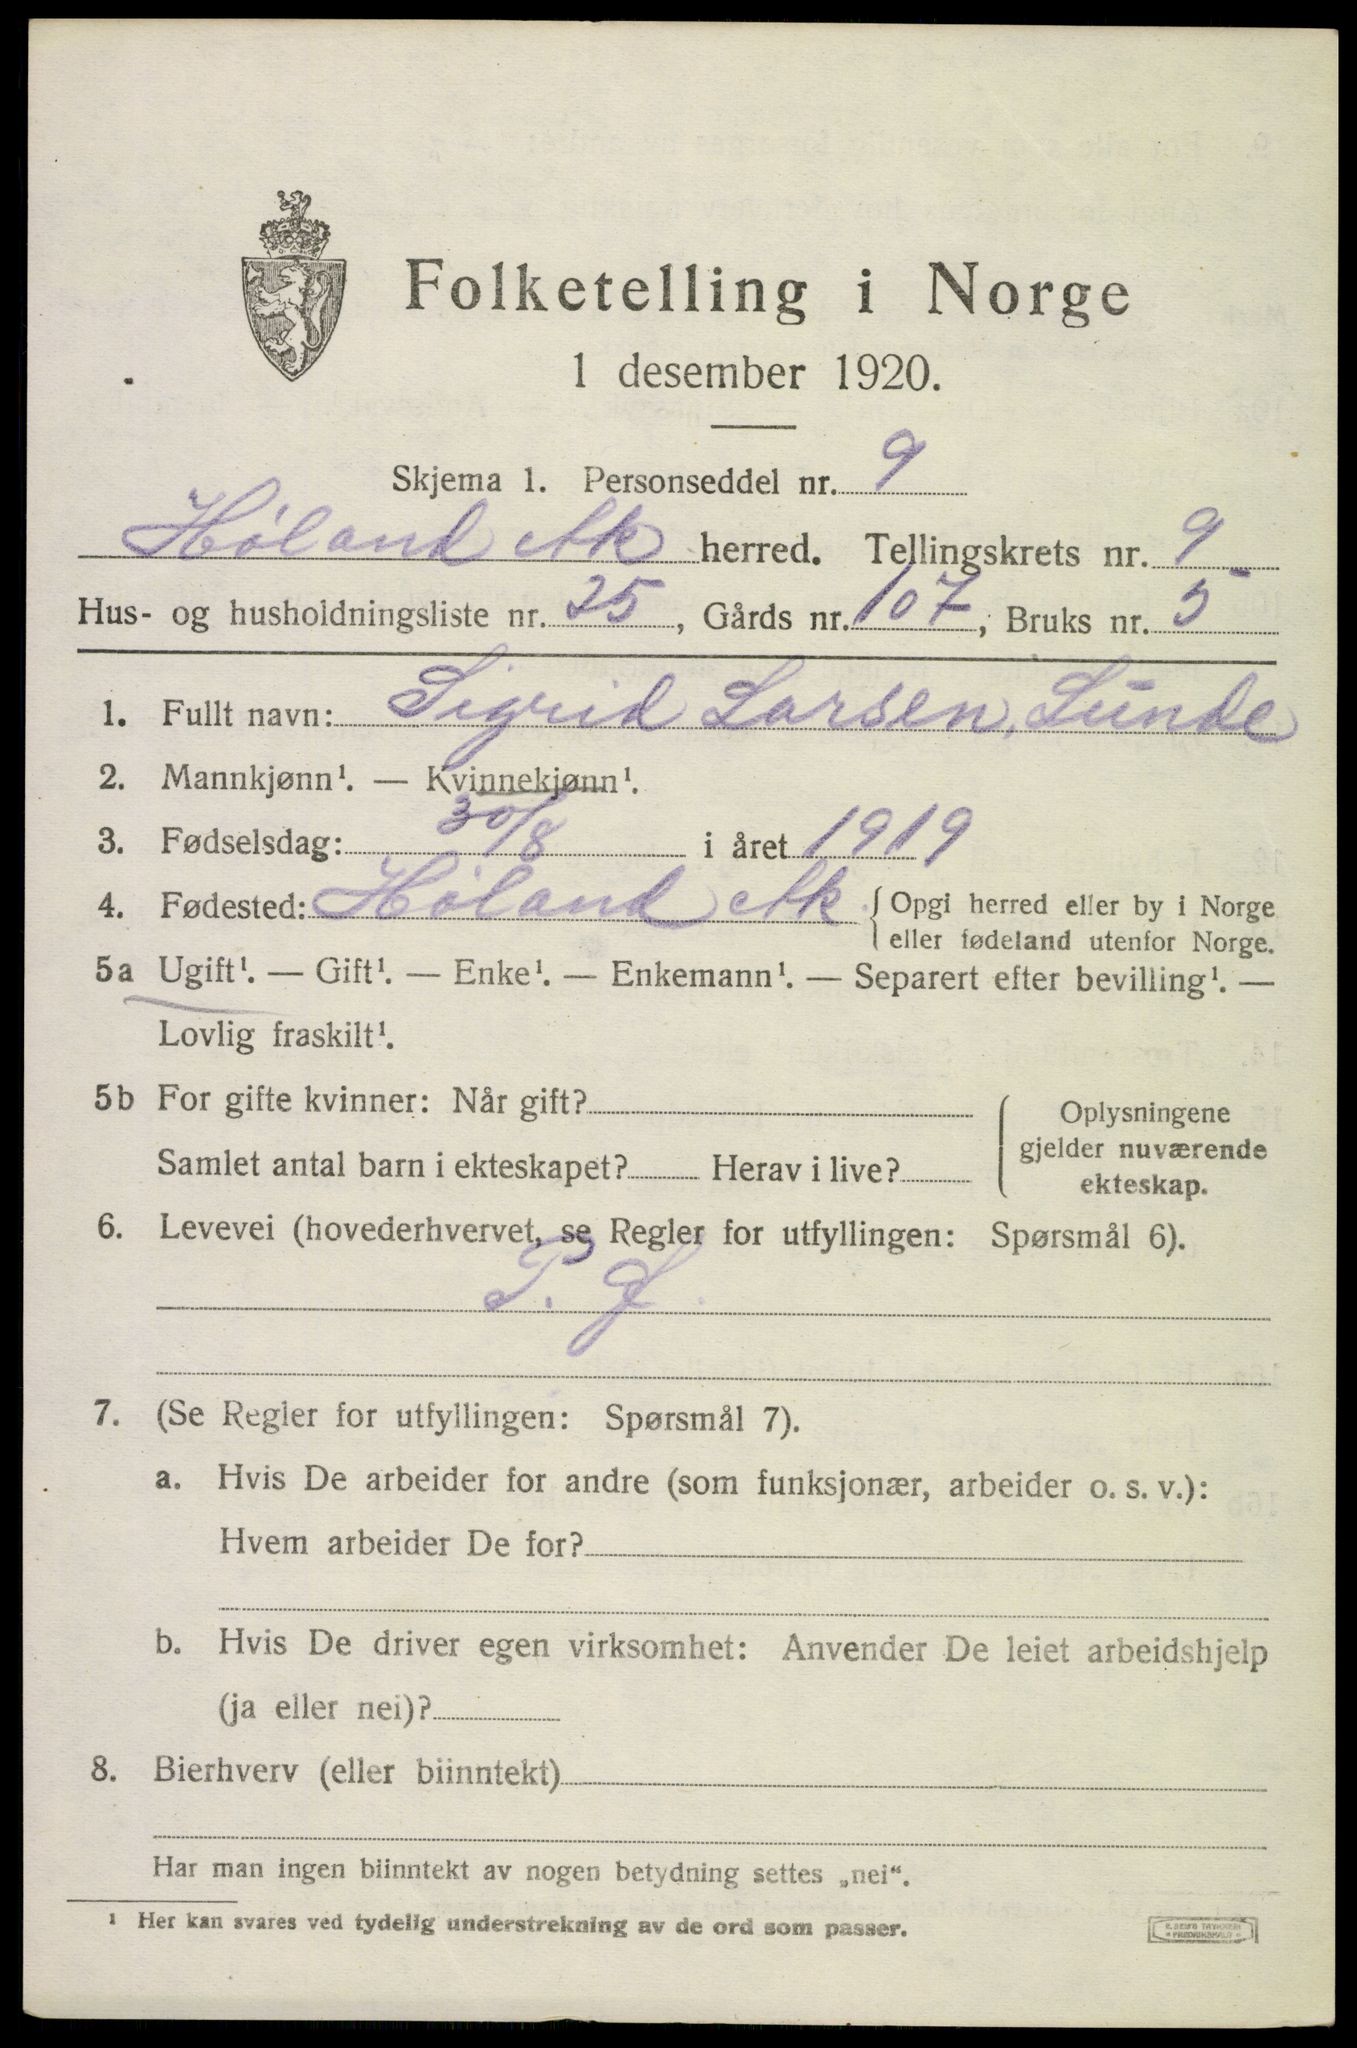 Folketelling i Norge
1 desember 1920.
Skjema 1. Personseddel nr. 9
Høland Ak herred. Tellingskrets nr. 9
Hus- og husholdningsliste nr. 25, Gårds nr. 107, Bruks nr. 5
1. Fullt navn: Sigrid Larsen, Lunde
2. Mannkjønn¹. — Kvinnekjønn¹.
3. Fødselsdag: 30/8 i året 1919
4. Fødested: Høland Ak. { Opgi herred eller by i Norge
eller fødeland utenfor Norge.
5a Ugift¹. — Gift¹. — Enke¹. — Enkemann¹. — Separert efter bevilling¹. —
Lovlig fraskilt¹.
5b For gifte kvinner: Når gift?
Samlet antal barn i ekteskapet? Herav i live?
Oplysningene
gjelder nuværende
ekteskap.
6. Levevei (hovederhvervet, se Regler for utfyllingen: Spørsmål 6).
7. (Se Regler for utfyllingen: Spørsmål 7).
a. Hvis De arbeider for andre (som funksjonær, arbeider o. s. v.):
Hvem arbeider De for?
b. Hvis De driver egen virksomhet: Anvender De leiet arbeidshjelp
(ja eller nei)?
8. Bierhverv (eller biinntekt)
Har man ingen biinntekt av nogen betydning settes „nei“.
¹ Her kan svares ved tydelig understrekning av de ord som passer.